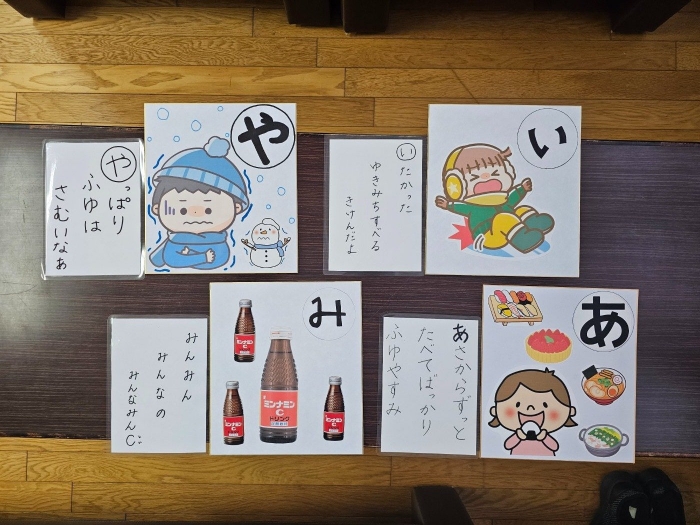 やっぱり
ふゆは
さむいなぁ
や
いたかった
ゆきみちすべる
きけんだよ
い
みんみん
みんなの
みんなみんC
み
ミンナミン
C
ドリンク
ミンナミン
C
ミンナミン
C
ミンナミン
C
あさからずっと
たべてばっかり
ふゆやすみ
あ